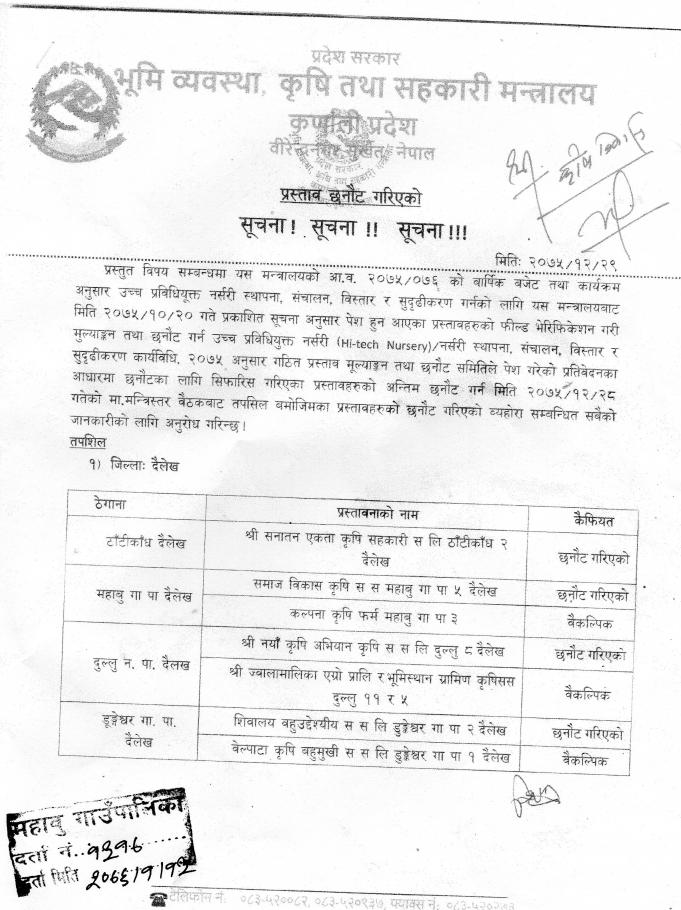 प्रदेश सरकार
भूमि व्यवस्था, कृषि तथा सहकारी मन्त्रालय
कर्णाली प्रदेश
वीरेन्द्रनगर सुर्खेत, नेपाल
प्रस्ताव छनौट गरिएको
सूचना! सूचना !! सूचना !!!
मितिः २०७५/१२/२९
प्रस्तुत विषय सम्बन्धमा यस मन्त्रालयको आ.व. २०७५/०७६ को बार्षिक बजेट तथा कार्यक्रम
अनुसार उच्च प्रविधियुक्त नर्सरी स्थापना, संचालन, विस्तार र सुदृढीकरण गर्नको लागि यस मन्त्रालयबाट
मिति २०७५/१०/२० गते प्रकाशित सूचना अनुसार पेश हुन आएका प्रस्तावहरुको फील्ड भेरिफिकेशन गरी
मुल्याङ्कन तथा छनौट गर्न उच्च प्रविधियुक्त नर्सरी (Hi-tech Nursery)/नर्सरी स्थापना, संचालन, विस्तार र
सुदृढीकरण कार्यविधि, २०७५ अनुसार गठित प्रस्ताव मूल्याङ्कन तथा छनौट समितिले पेश गरेको प्रतिवेदनका
आधारमा छनौटका लागि सिफारिस गरिएका प्रस्तावहरुको अन्तिम छनौट गर्न मिति २०७५/१२/२८
गतेको मा.मन्त्रिस्तर बैठकबाट तपसिल बमोजिमका प्रस्तावहरुको छनौट गरिएको व्यहोरा सम्बन्धित सबैको
जानकारीको लागि अनुरोध गरिन्छ।
तपशिल
१) जिल्लाः दैलेख
ठेगाना प्रस्तावनाको नाम कैफियत
टाँटीकाँध दैलेख श्री सनातन एकता कृषि सहकारी स लि ठाँटीकाँध २ दैलेख छनौट गरिएको
महाबु गा पा दैलेख समाज विकास कृषि स स महाबु गा पा ५ दैलेख छनौट गरिएको
कल्पना कृषि फर्म महाबु गा पा ३ वैकल्पिक
दुल्लु न. पा. दैलख श्री नयाँ कृषि अभियान कृषि स स लि दुल्लु ८ दैलेख छनौट गरिएको
श्री ज्वालामालिका एग्रो प्रालि र भूमिस्थान ग्रामिण कृषिसस दुल्लु ११ र ५ वैकल्पिक
डूङ्गेश्वर गा. पा. दैलेख शिवालय वहुउद्देश्यीय स स लि डुङ्गेश्वर गा पा २ दैलेख छनौट गरिएको
वेल्पाटा कृषि बहुमुखी स स लि डुङ्गेश्वर गा पा १ दैलेख बैकल्पिक
महाबु गाउँपालिका
दर्ता नं. १३१८
दर्ता मिति २०७६।१।१२
टेलिफोन नं: ०८३-५२००८२, ०८३-५२०९३७, फ्याक्स नं: